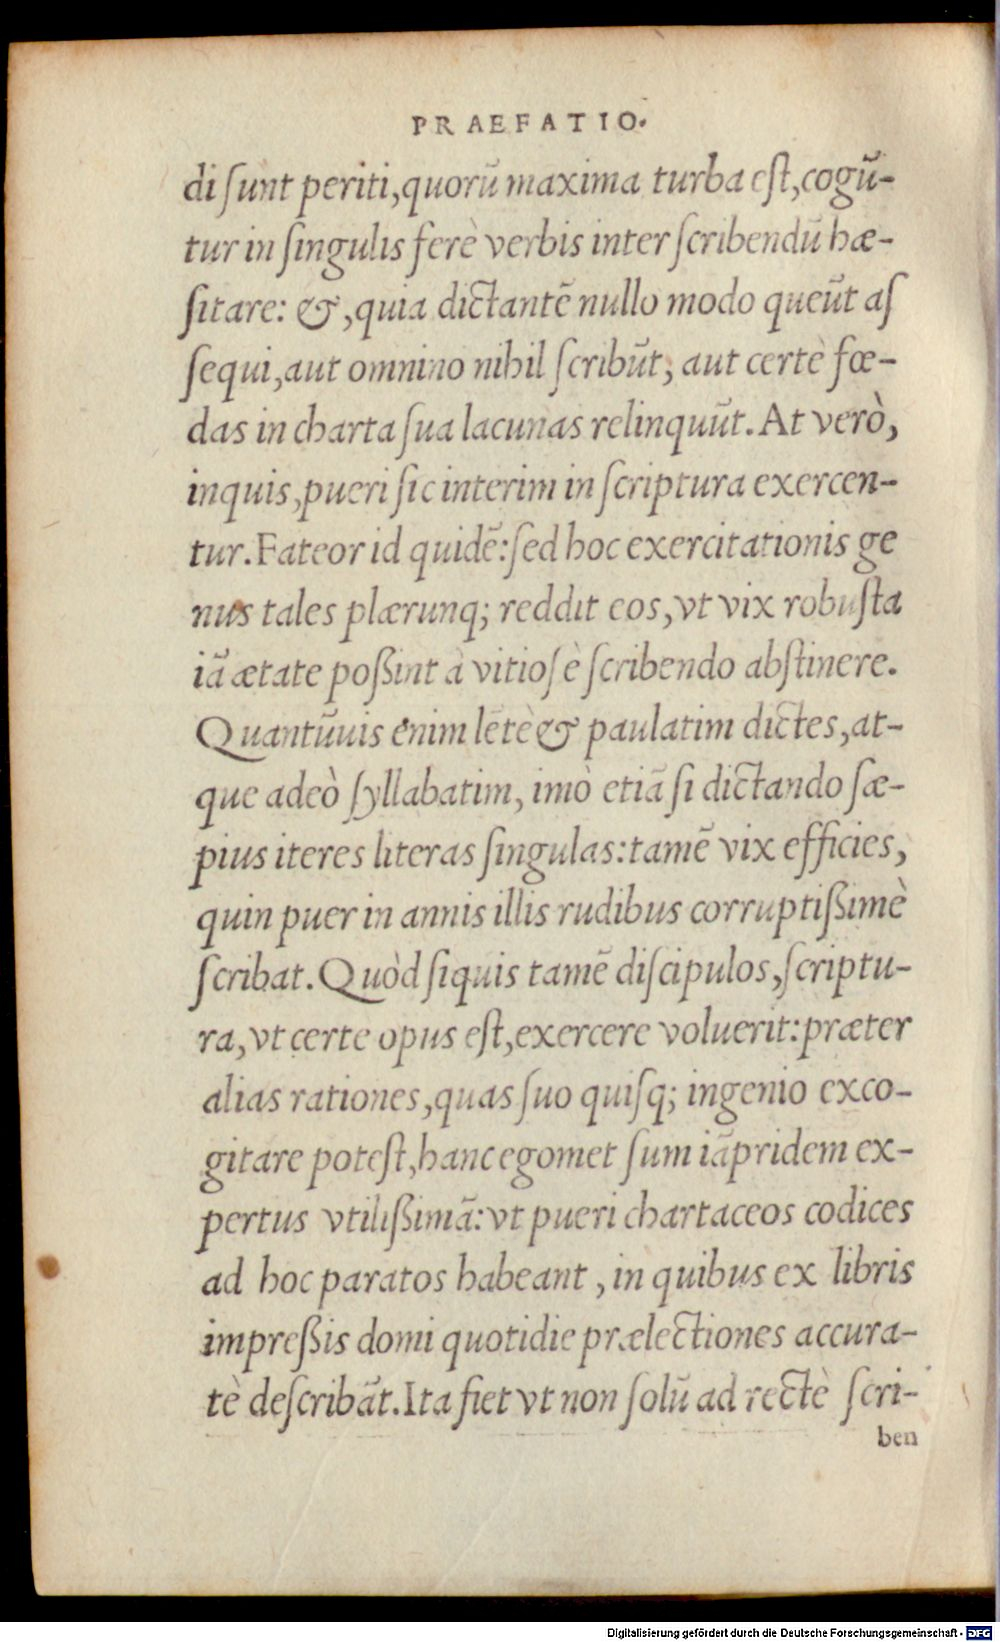 PRAEFATIO.
di ſunt periti, quorū maxima turba eſt, cogū-
tur in ſingulis ferè verbis inter ſcribendū hæ-
ſitare: &, quia dictantē nullo modo queūt aſ
ſequi, aut omnino nihil ſcribūt, aut certè fœ-
das in charta ſua lacunas relinquūt. At verò,
inquis, pueri ſic interim in ſcriptura exercen-
tur. Fateor id quidē: ſed hoc exercitationis ge
nus tales plærunq; reddit eos, vt vix robuſta
iā ætate poßint à vitioſè ſcribendo abſtinere.
Quantūuis enim lētè & paulatim dictes, at-
que adeò ſyllabatim, imò etiā ſi dictando ſæ-
pius iteres literas ſingulas: tamē vix efficies,
quin puer in annis illis rudibus corruptißimè
ſcribat. Quòd ſiquis tamē diſcipulos, ſcriptu-
ra, vt certe opus eſt, exercere voluerit: præter
alias rationes, quas ſuo quiſq; ingenio exco-
gitare poteſt, hanc egomet ſum iāpridem ex-
pertus vtilißimā: vt pueri chartaceos codices
ad hoc paratos habeant, in quibus ex libris
impreßis domi quotidie prælectiones accura-
tè deſcribāt. Ita fiet vt non ſolū ad rectè ſcri-
ben
Digitalisierung gefördert durch die Deutsche Forschungsgemeinschaft - DFG